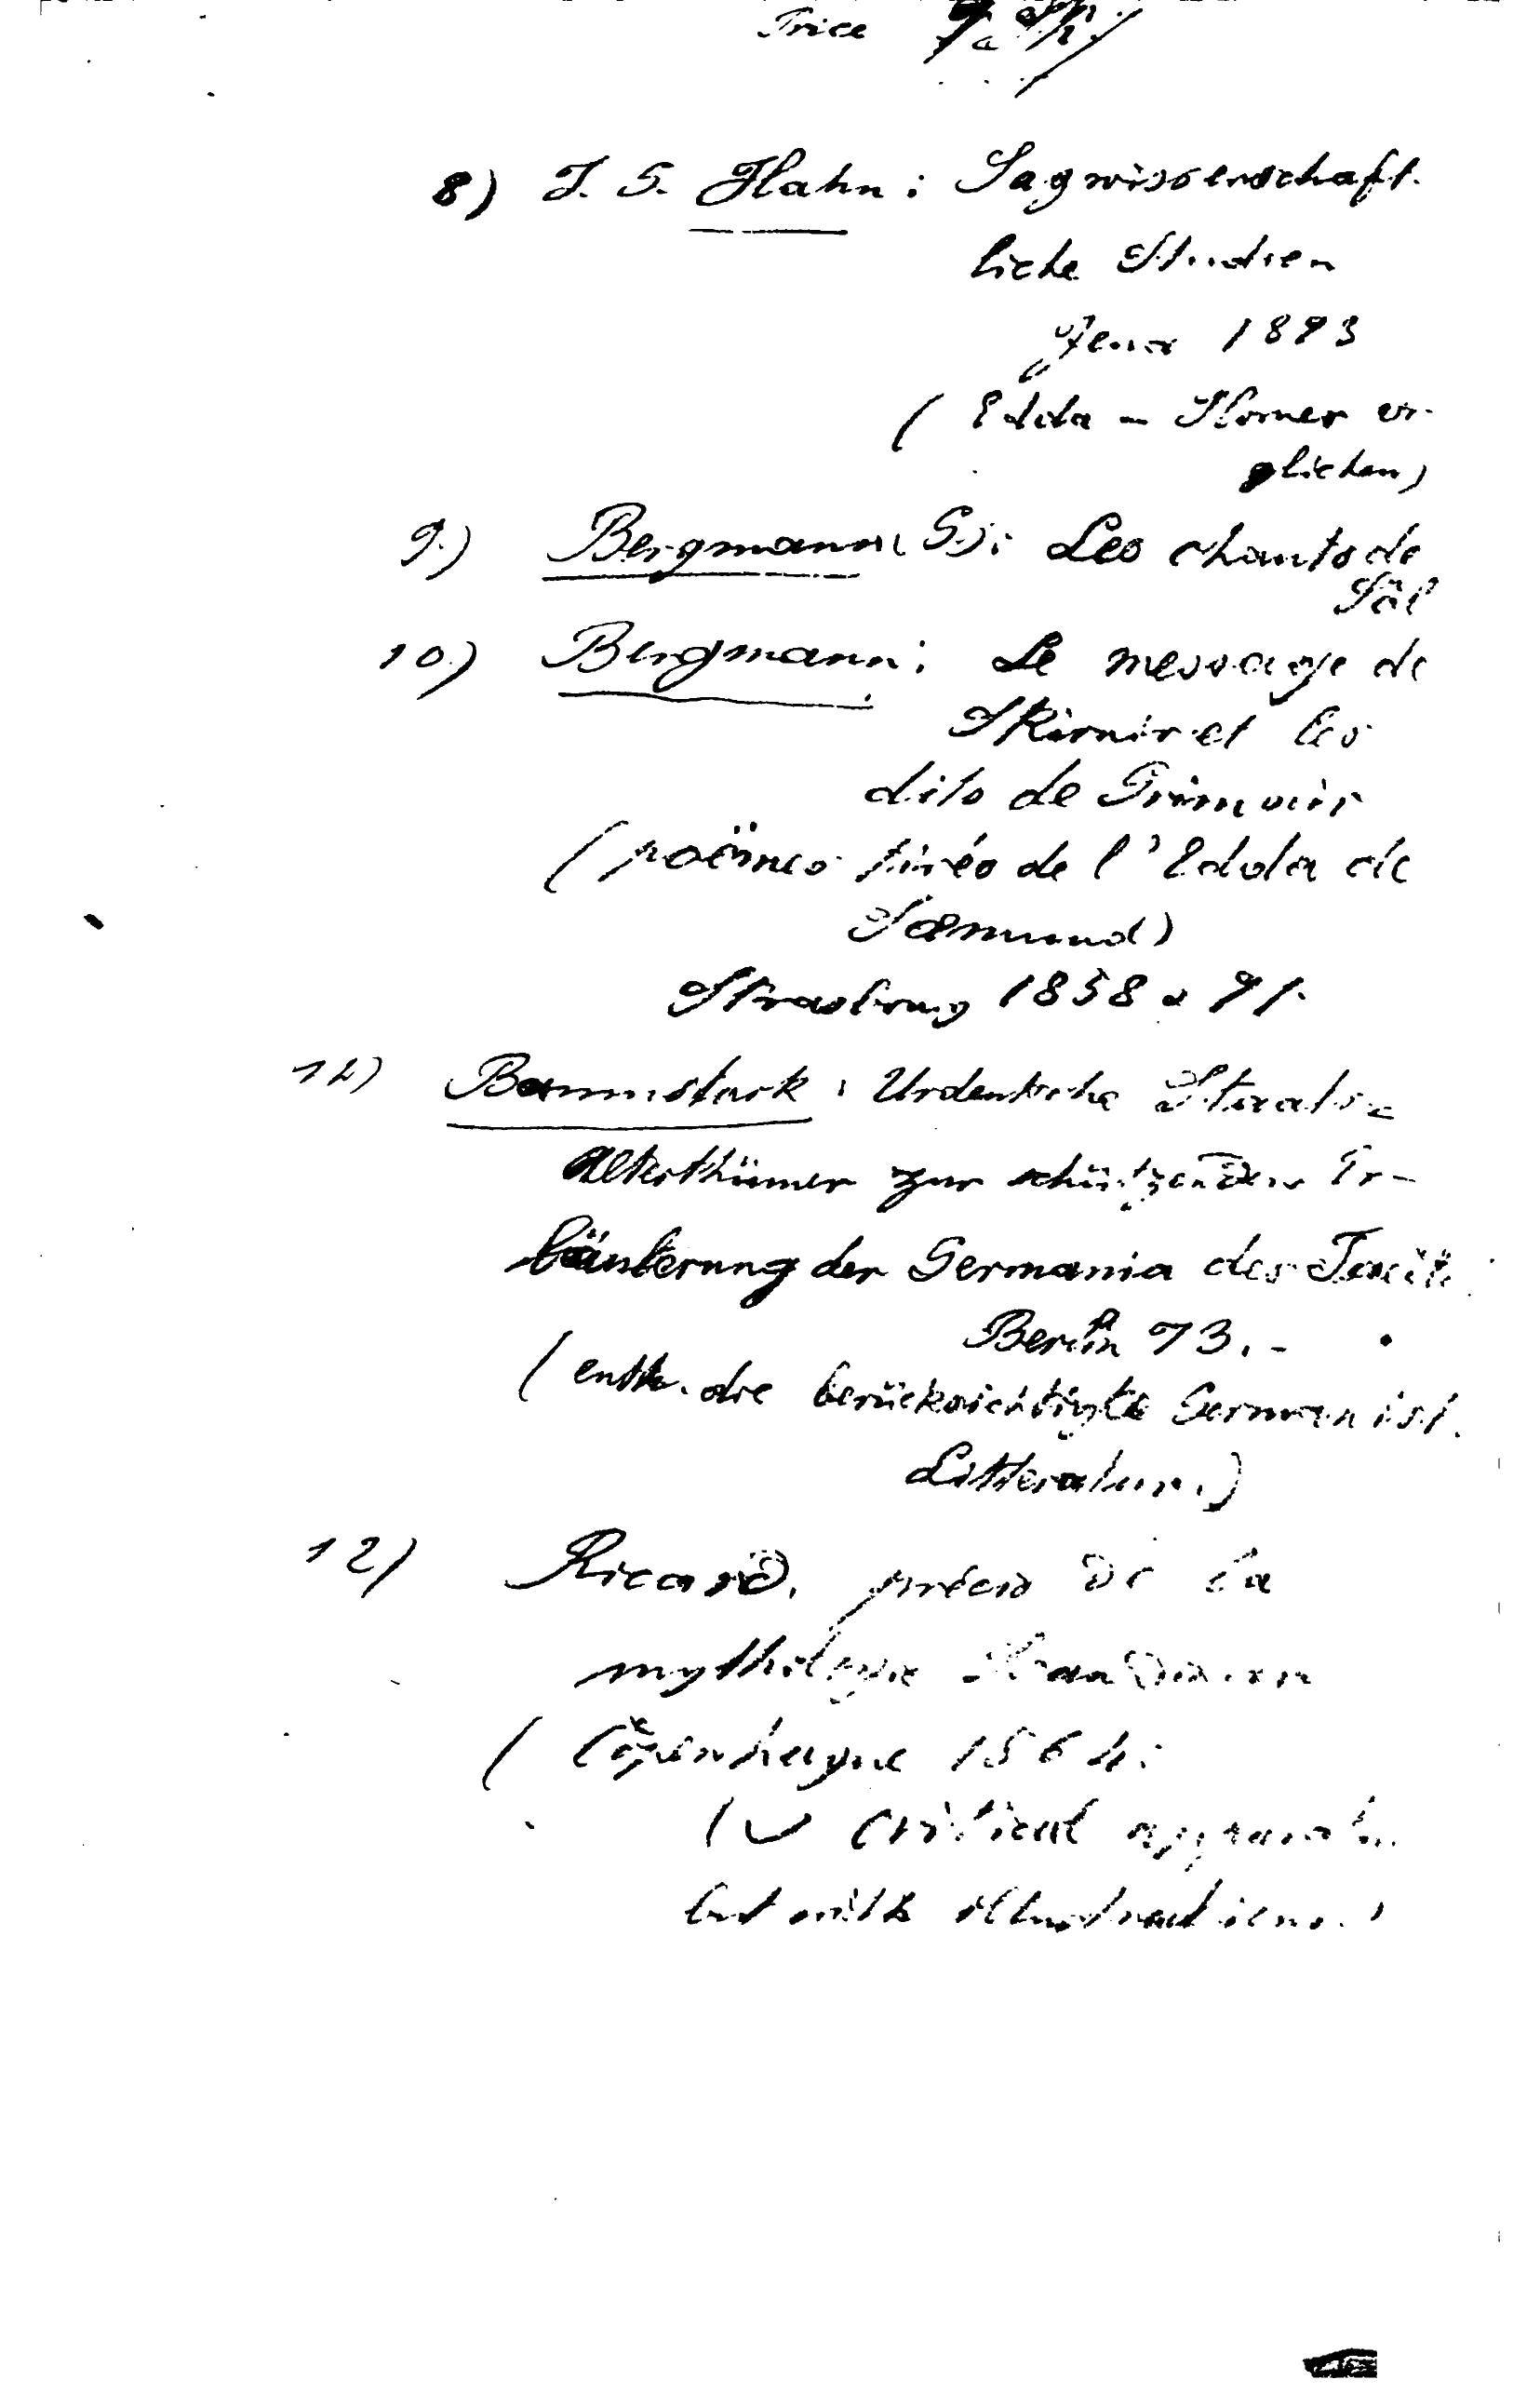 Price
8) J. G. Hahn: Sagwissenschaft-
liche Studien
Jena 1873
(Edda - Homer ver-
glichen)
9.) Bergmann (G.): Les chants de
Sôl
10.) Bergmann: Le message de
Skirnir et les
dits de Grimnir
(poëmes tirés de l'Edda de
Sæmund)
Strasbourg 1858 & 71.
11) Baumstark: Urdeutsche Staats-
alterthümer zur schützenden Er-
läuterung der Germania des Tacit.
Berlin 73.-
(enth. die berücksichtigte Germanist.
Litteratur.)
12) Ricard, précis de la
mythologie Scandinave
(Copenhague 1864.
critical
but with illustrations.)